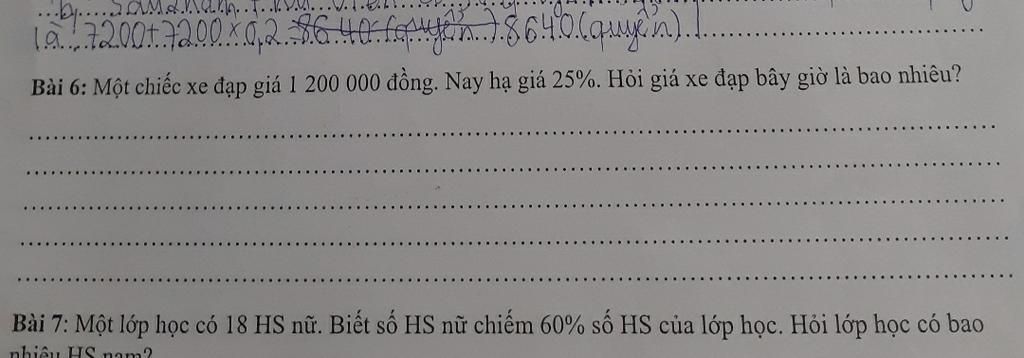 b,
là: 7200+7200 x 0,2 = 8640 (quyển) 8640 (quyển)
Bài 6: Một chiếc xe đạp giá 1 200 000 đồng. Nay hạ giá 25%. Hỏi giá xe đạp bây giờ là bao nhiêu?
Bài 7: Một lớp học có 18 HS nữ. Biết số HS nữ chiếm 60% số HS của lớp học. Hỏi lớp học có bao
nhiêu HS nam?